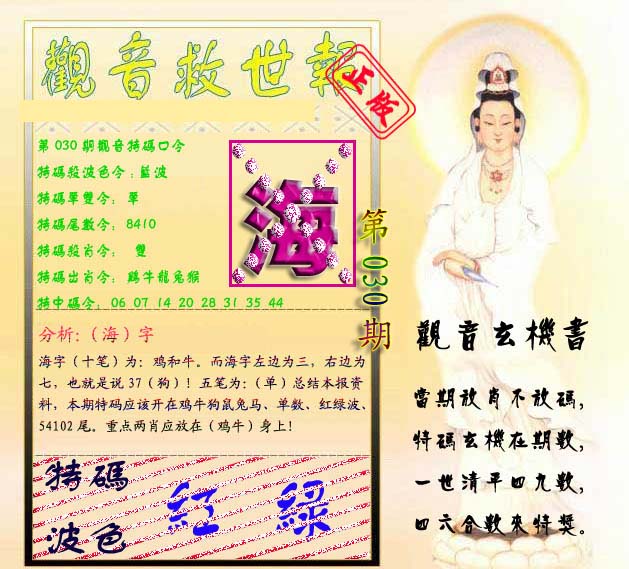 觀音救世報
正版
第030期觀音特碼口令
特碼殺波色令:藍波
特碼單雙令: 單
特碼尾數令: 8410
特碼殺肖令: 雙
特碼出肖令: 鷄牛龍兔猴
特中碼令: 06 07 14 20 28 31 35 44
海
第030期
分析:（海）字
海字（十笔）为：鸡和牛。而海字左边为三，右边为
七，也就是说 37（狗）！五笔为：（单）总结本报资
料，本期特码应该开在鸡牛狗鼠兔马、单数、红绿波、
54102 尾。重点两肖应放在（鸡牛）身上！
特碼
波色
紅 綠
觀音玄機書
當期放肖不放碼，
特碼玄機在期數，
一世清平四九數，
四六合數來特獎。